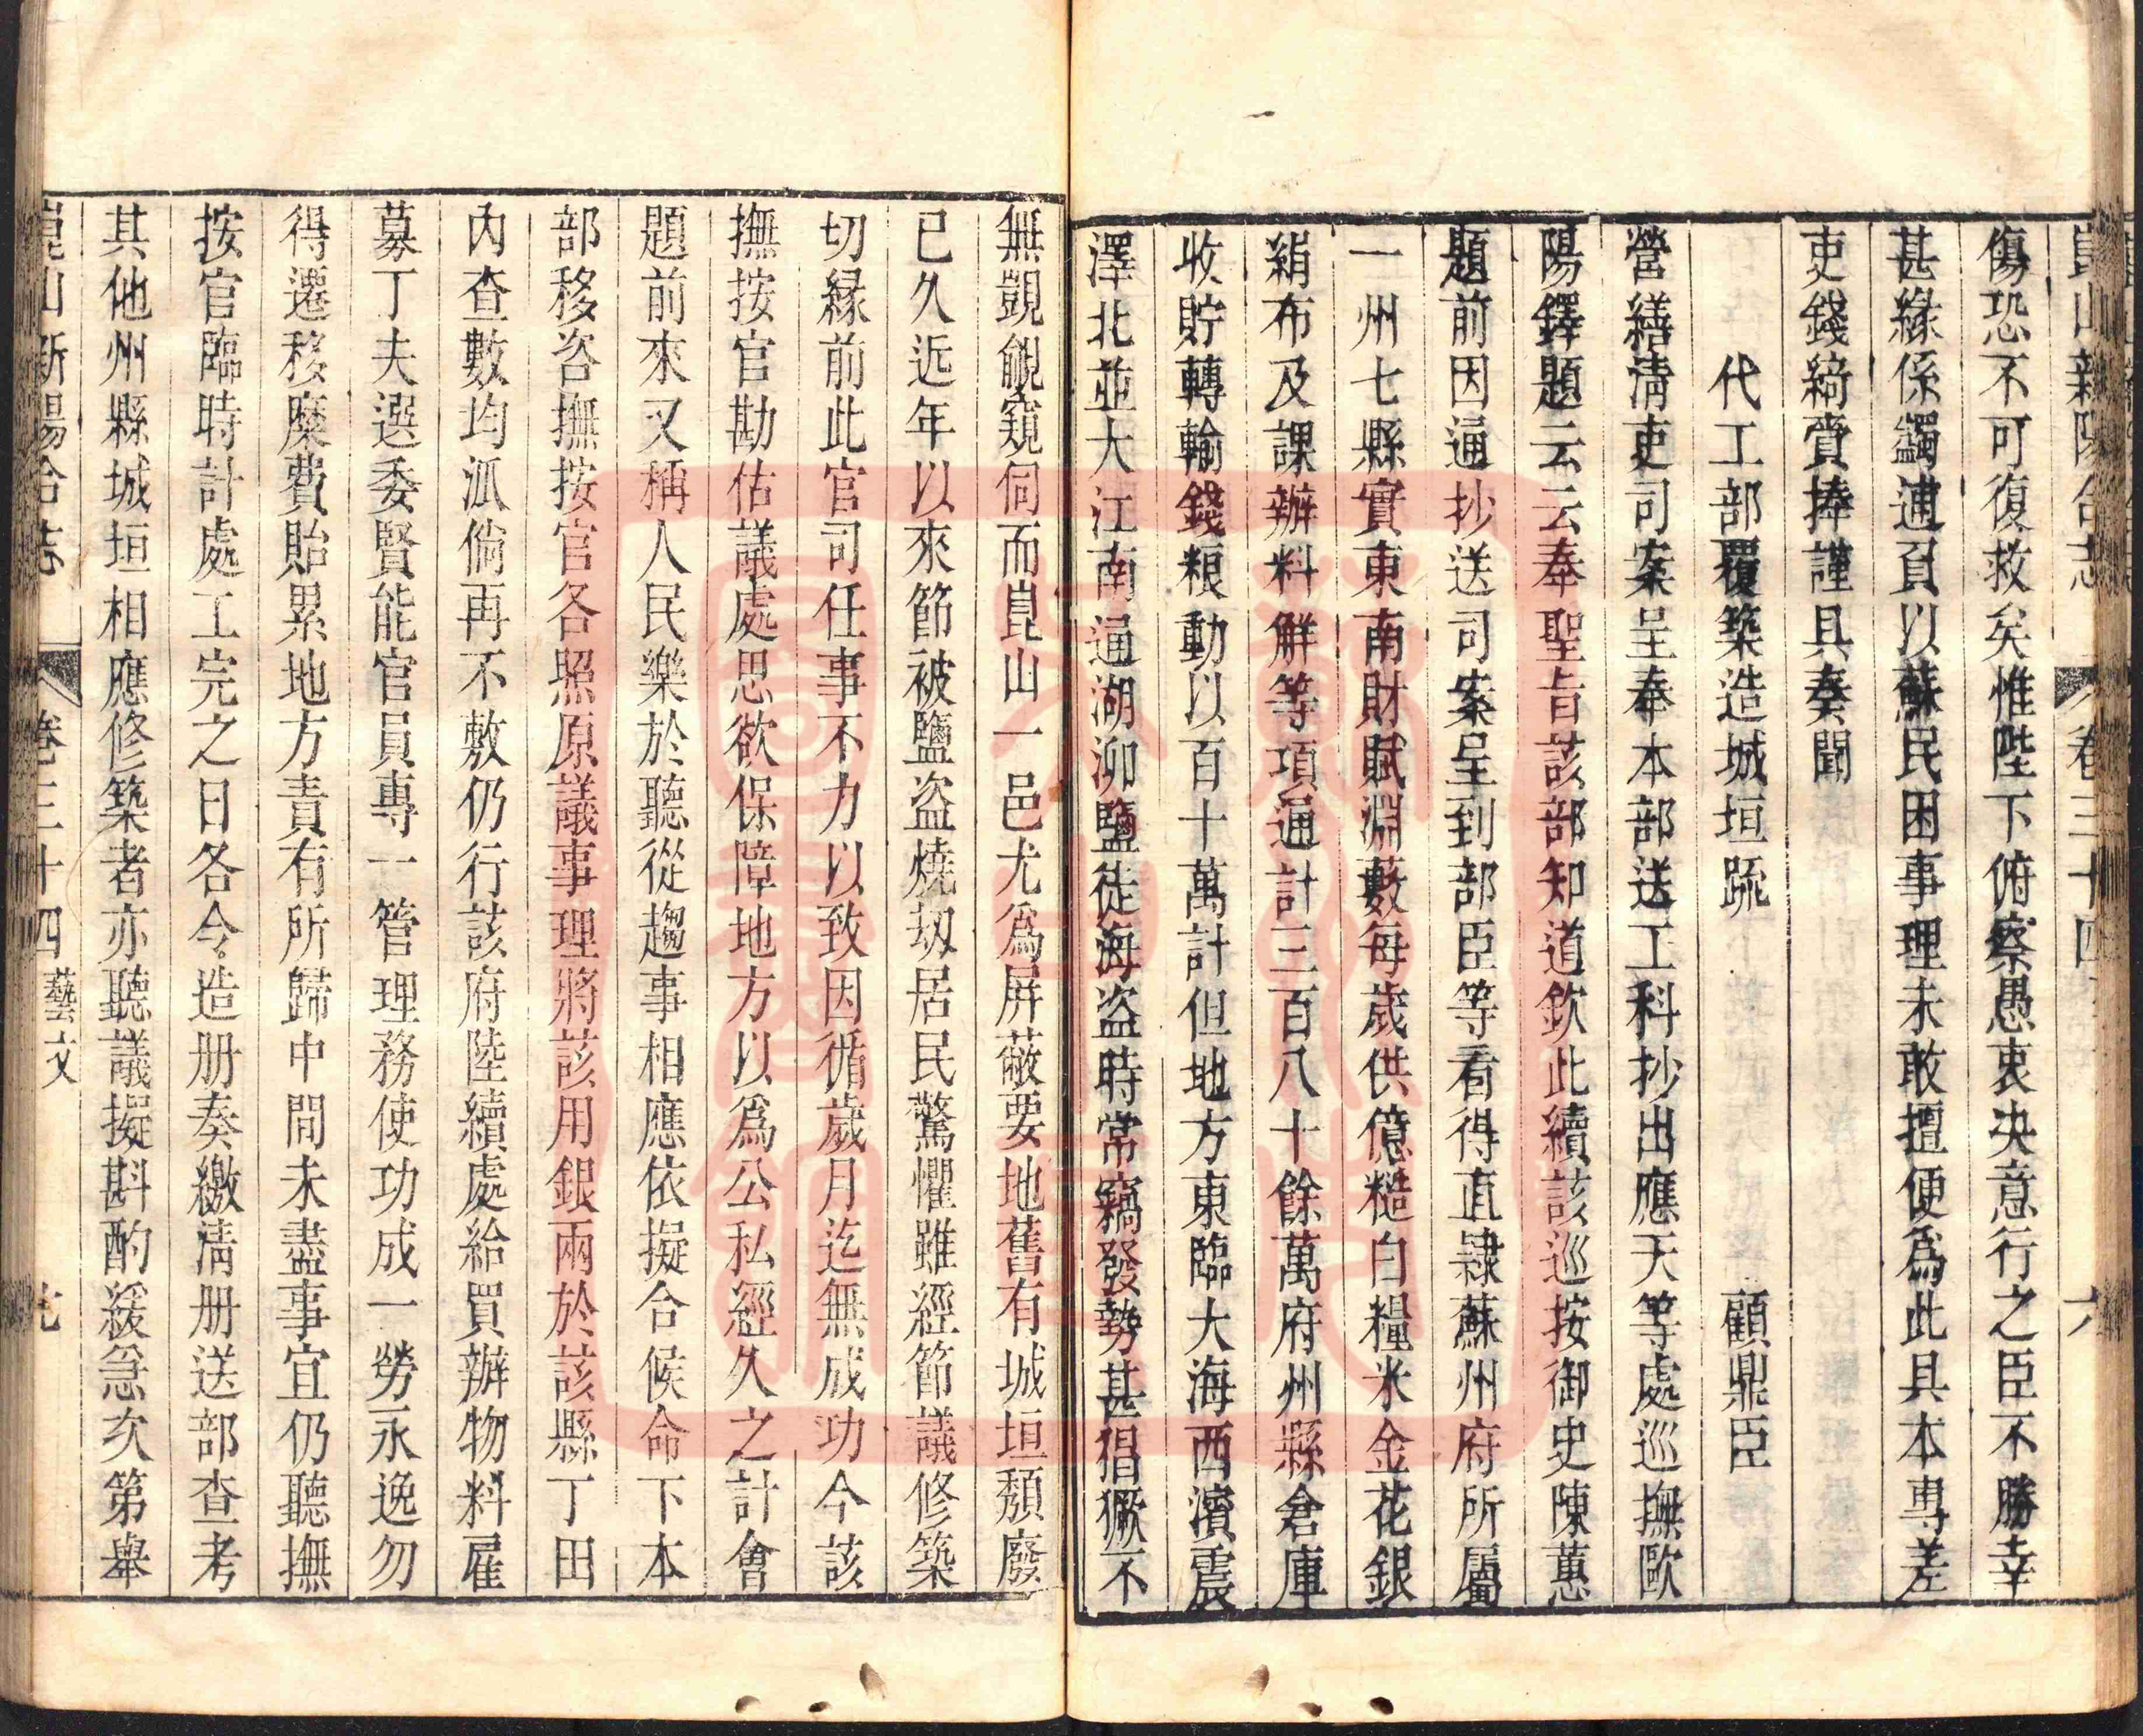 崑山新陽合志 卷三十四 六
傷恐不可復救矣惟陛下俯察愚衷決意行之臣不勝幸
甚緣係蠲逋負以蘇民困事理未敢擅便爲此具本專差
吏錢綺賫捧謹具奏聞
代工部覆築造城垣疏 顧鼎臣
營繕清吏司案呈奉本部送工科抄出應天等處巡撫歐
陽鐸題云云奉聖旨該部知道欽此續該巡按御史陳蕙
題前因通抄送司案呈到部臣等看得直隸蘇州府所屬
一州七縣實東南財賦淵藪每歲供億糙白糧米金花銀
絹布及課辦料解等項通計三百八十餘萬府州縣倉庫
收貯轉輸錢粮動以百十萬計但地方東臨大海西濱震
澤北並大江南通湖泖鹽徒海盜時常竊發勢甚猖獗不
無覬覦窺伺而崑山一邑尤爲屏蔽要地舊有城垣頹廢
已久近年以來節被鹽盜燒刼居民驚懼雖經節議修築
切緣前此官司任事不力以致因循歲月迄無成功今該
撫按官勘估議處思欲保障地方以爲公私經久之計會
題前來又稱人民樂於聽從趨事相應依擬合候命下本
部移咨撫按官各照原議事理將該用銀兩於該縣丁田
內查數均派倘再不敷仍行該府陸續處給買辦物料雇
募丁夫選委賢能官員專一管理務使功成一勞永逸勿
得遷移糜費貽累地方責有所歸中間未盡事宜仍聽撫
按官臨時計處工完之日各令造册奏繳清册送部查考
其他州縣城垣相應修築者亦聽議擬斟酌緩急次第舉
崑山新陽合志 卷三十四 藝文